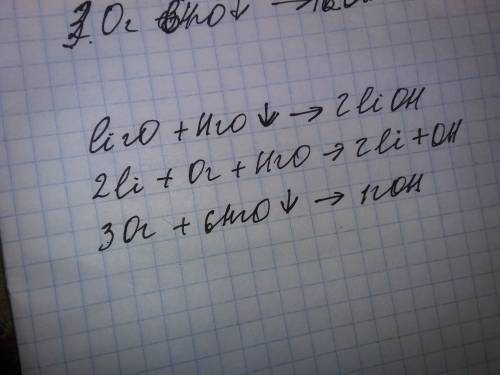 3. O2 6H2O↓ →12OH
li2O + H2O ↓ → 2liOH
2li + O2 + H2O → 2li + OH
3O2 + 6H2O ↓ → 12OH